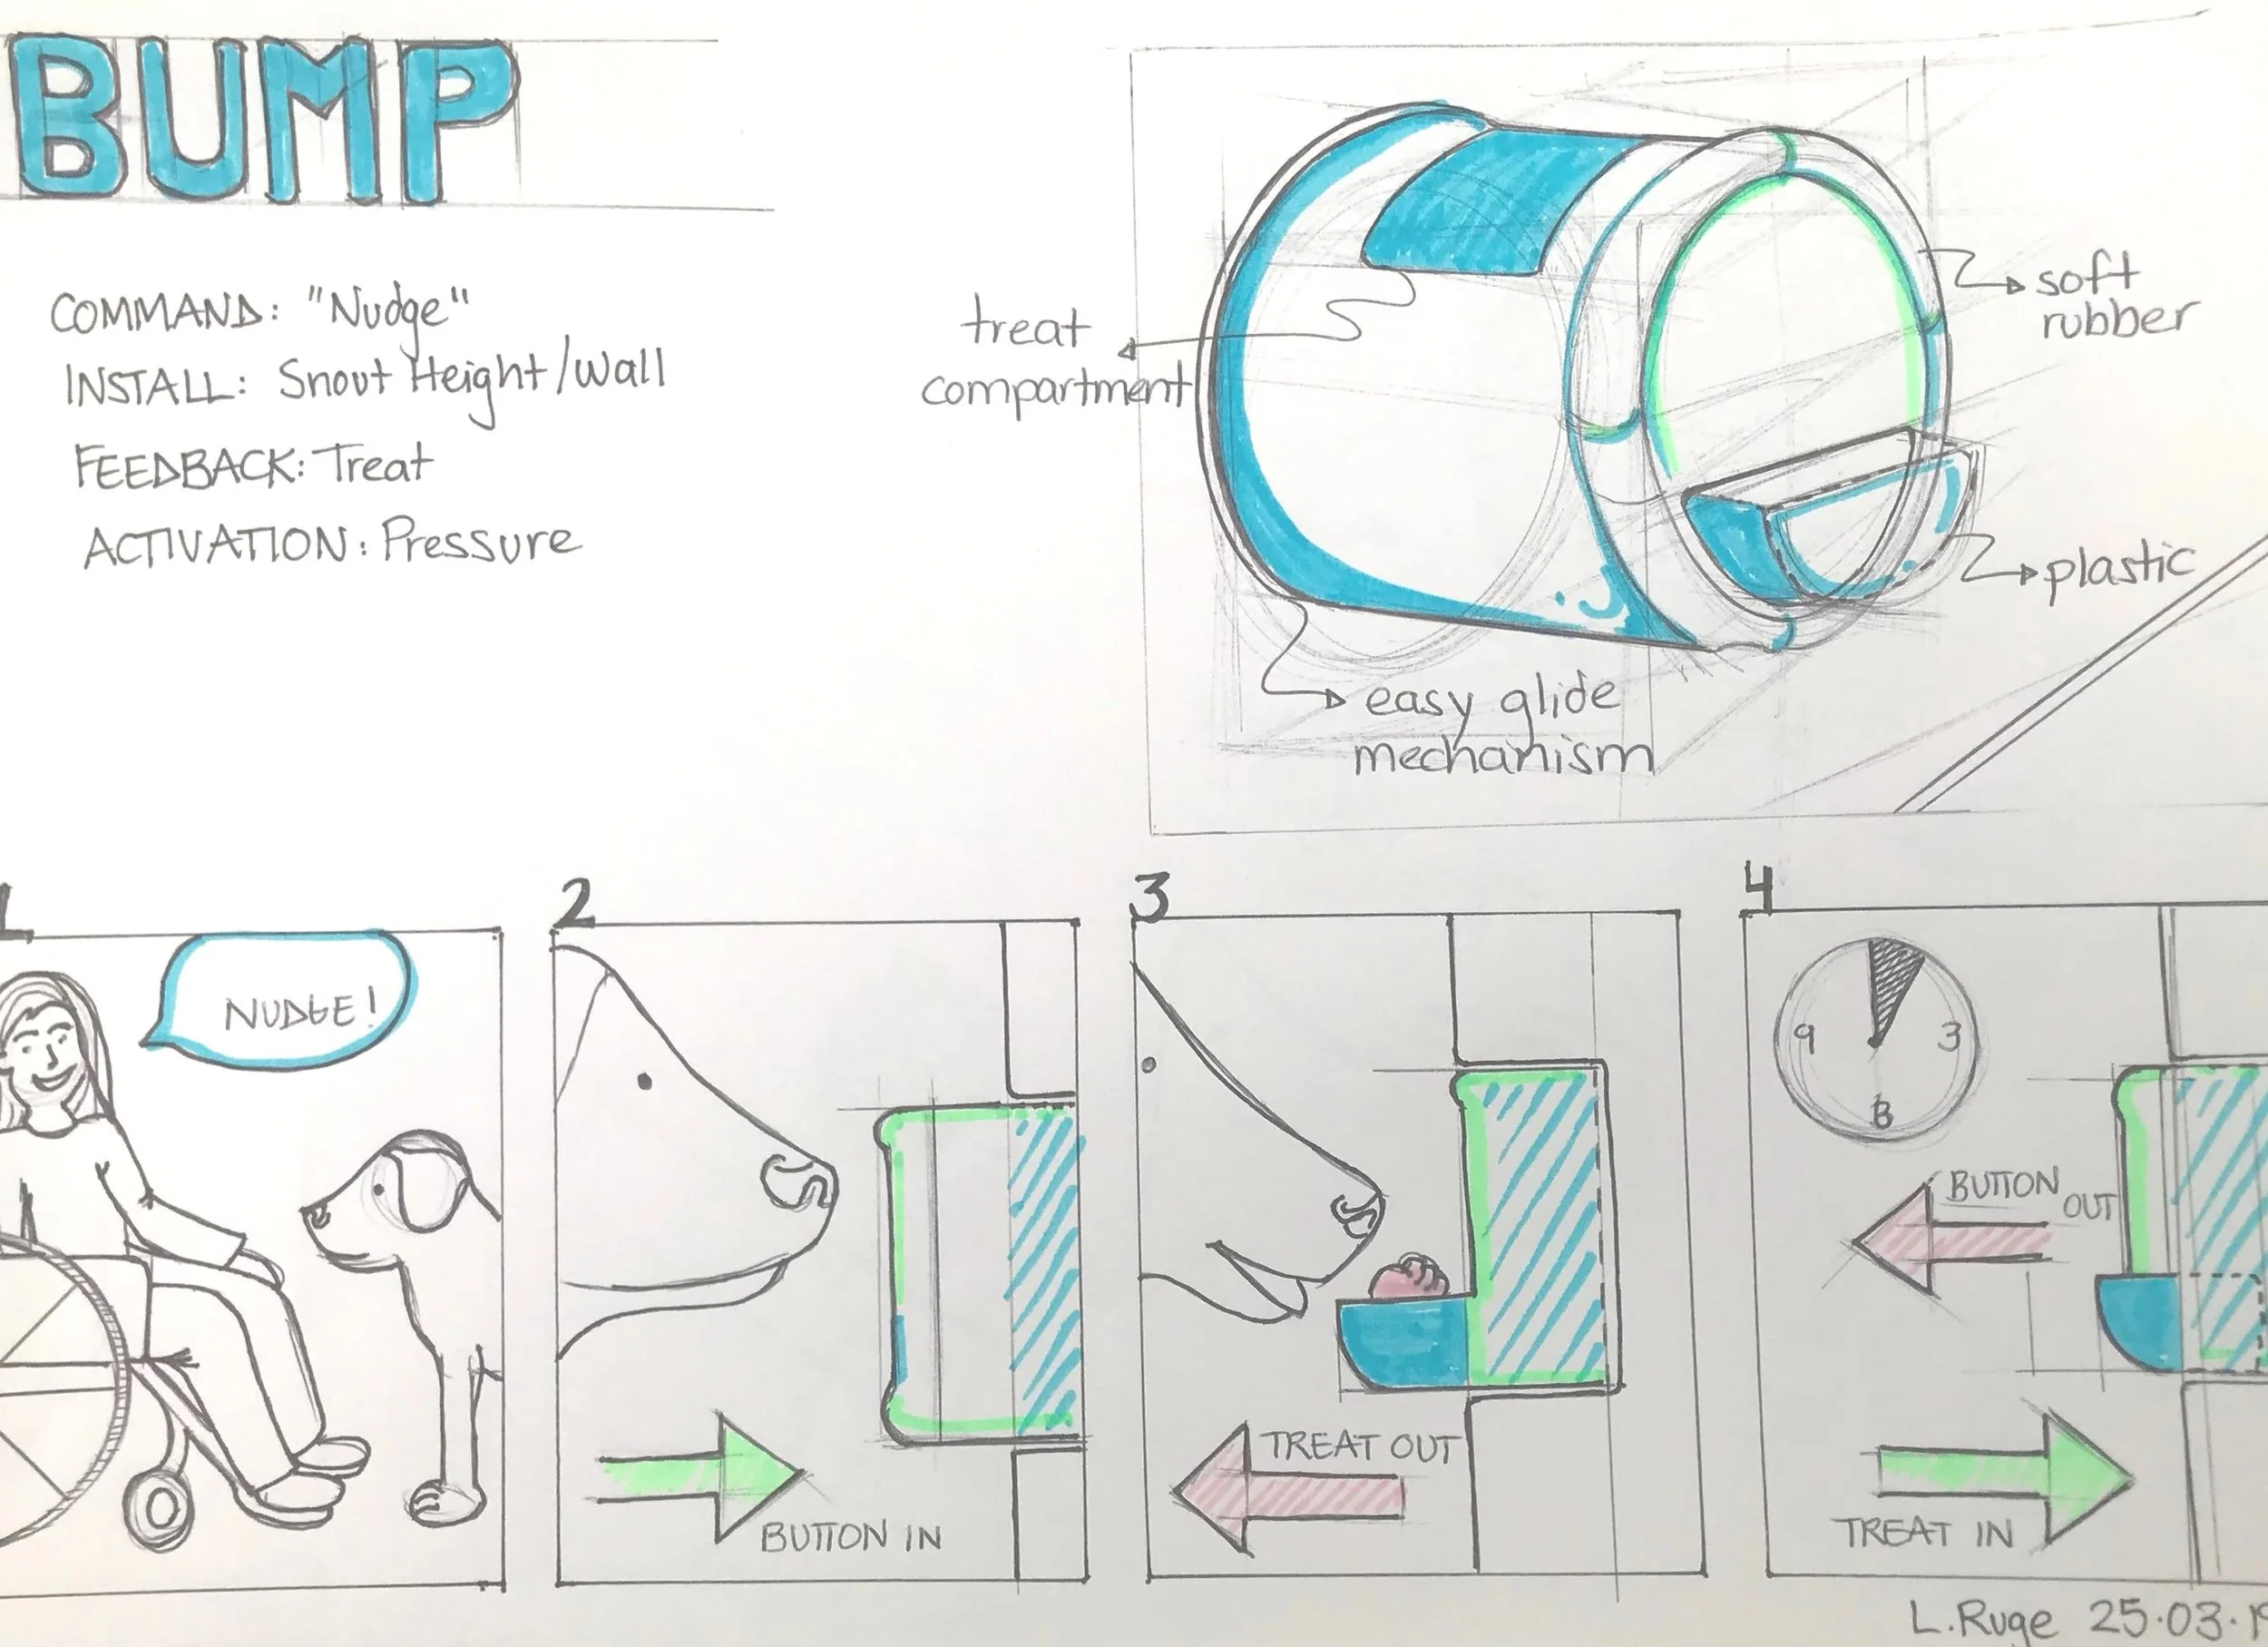 BUMP
COMMAND: "Nudge"
INSTALL: Snout Height/Wall
FEEDBACK: Treat
ACTIVATION: Pressure
treat
compartment
soft
rubber
plastic
easy glide
mechanism
1
NUDGE!
2
BUTTON IN
3
TREAT OUT
4
9
3
BUTTON
OUT
TREAT IN
L.Ruge 25.03.19